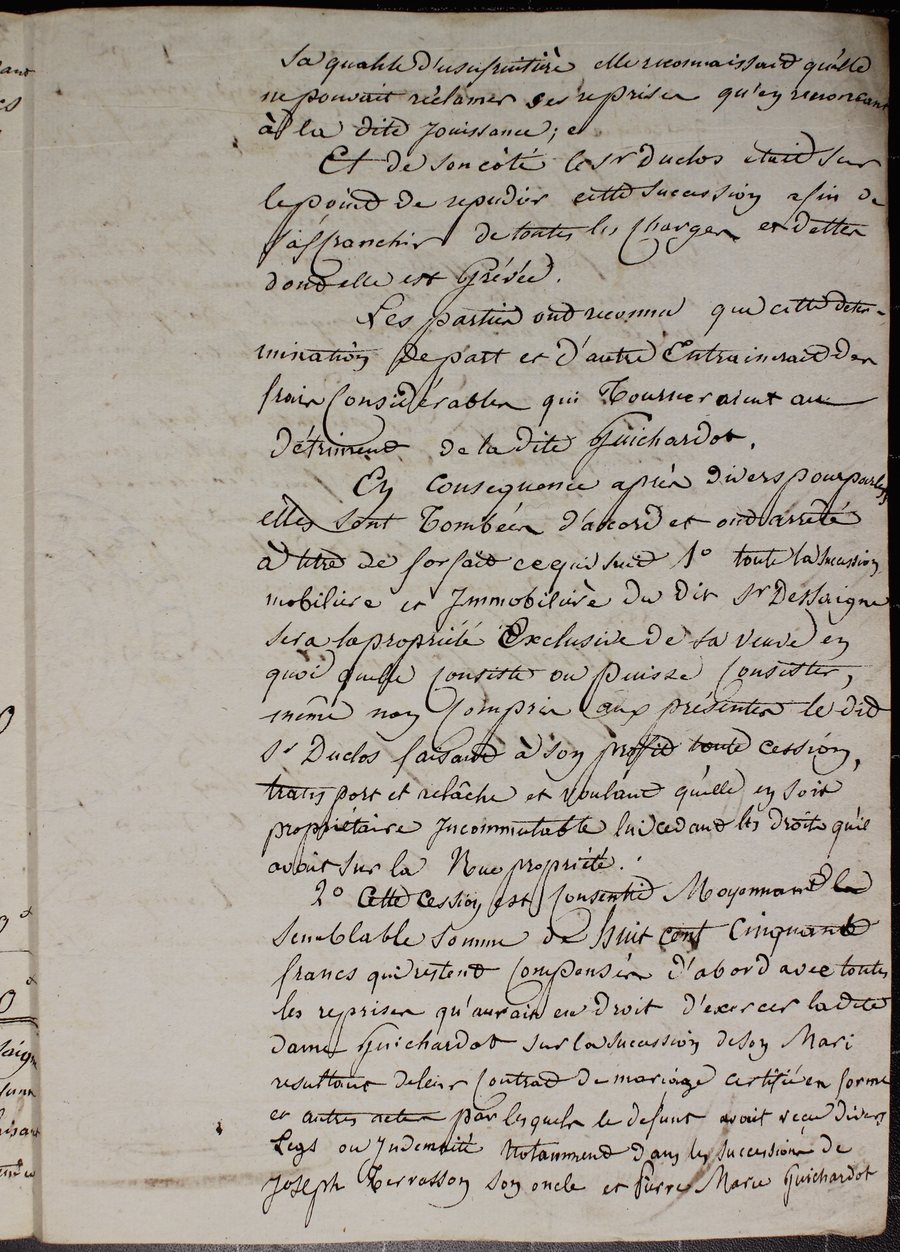 sa qualité d'usufruitière elle reconnaissait qu'elle
ne pouvait réclamer ses reprises qu'en renoncant
à la dite jouissance; e
Et de son côté le Sr Duclos était sur
le point de repudier cette sucession afin de
s'affranchir de toutes les charges et dettes
dont elle est Grévée.
Les parties ont reconnu que cette deter-
mination de part et d'autre Entrainerait des
frais Considérables qui Tourneraient au
détriment de la dite Guichardot.
En consequence après divers pourparlers
elles sont Tombées d'accord et ont arrêté
à titre de forfait ce qui suit 1o toute la sucession
mobilière et Immobilière du dit Sr Dessaigne
sera la propriété Exclusive de sa veuve en
quoi quelle consiste ou puisse Consister,
même non Compris aux présentes le dit
Sr Duclos faisant à son profit toute cession,
transport et relâche et voulant qu'elle en soit
propriétaire Incommutable lui cedant les droits qu'il
avait sur la Nue propriété.
2o Cette cession est Consentie Moyennant la
semblable somme de huit cent Cinquante
francs qui restent Compensés d'abord avec toutes
les reprises qu'aurait eu droit d'exercer la dite
dame Guichardot sur la sucession de son Mari
resultant de leur Contrat de mariage certifié en forme
et autres actes par lesquels le defunt avait reçu divers
Legs ou Indemnité Notamment dans les successions de
Joseph Terrasson son oncle et Pierre Marie Guichardot